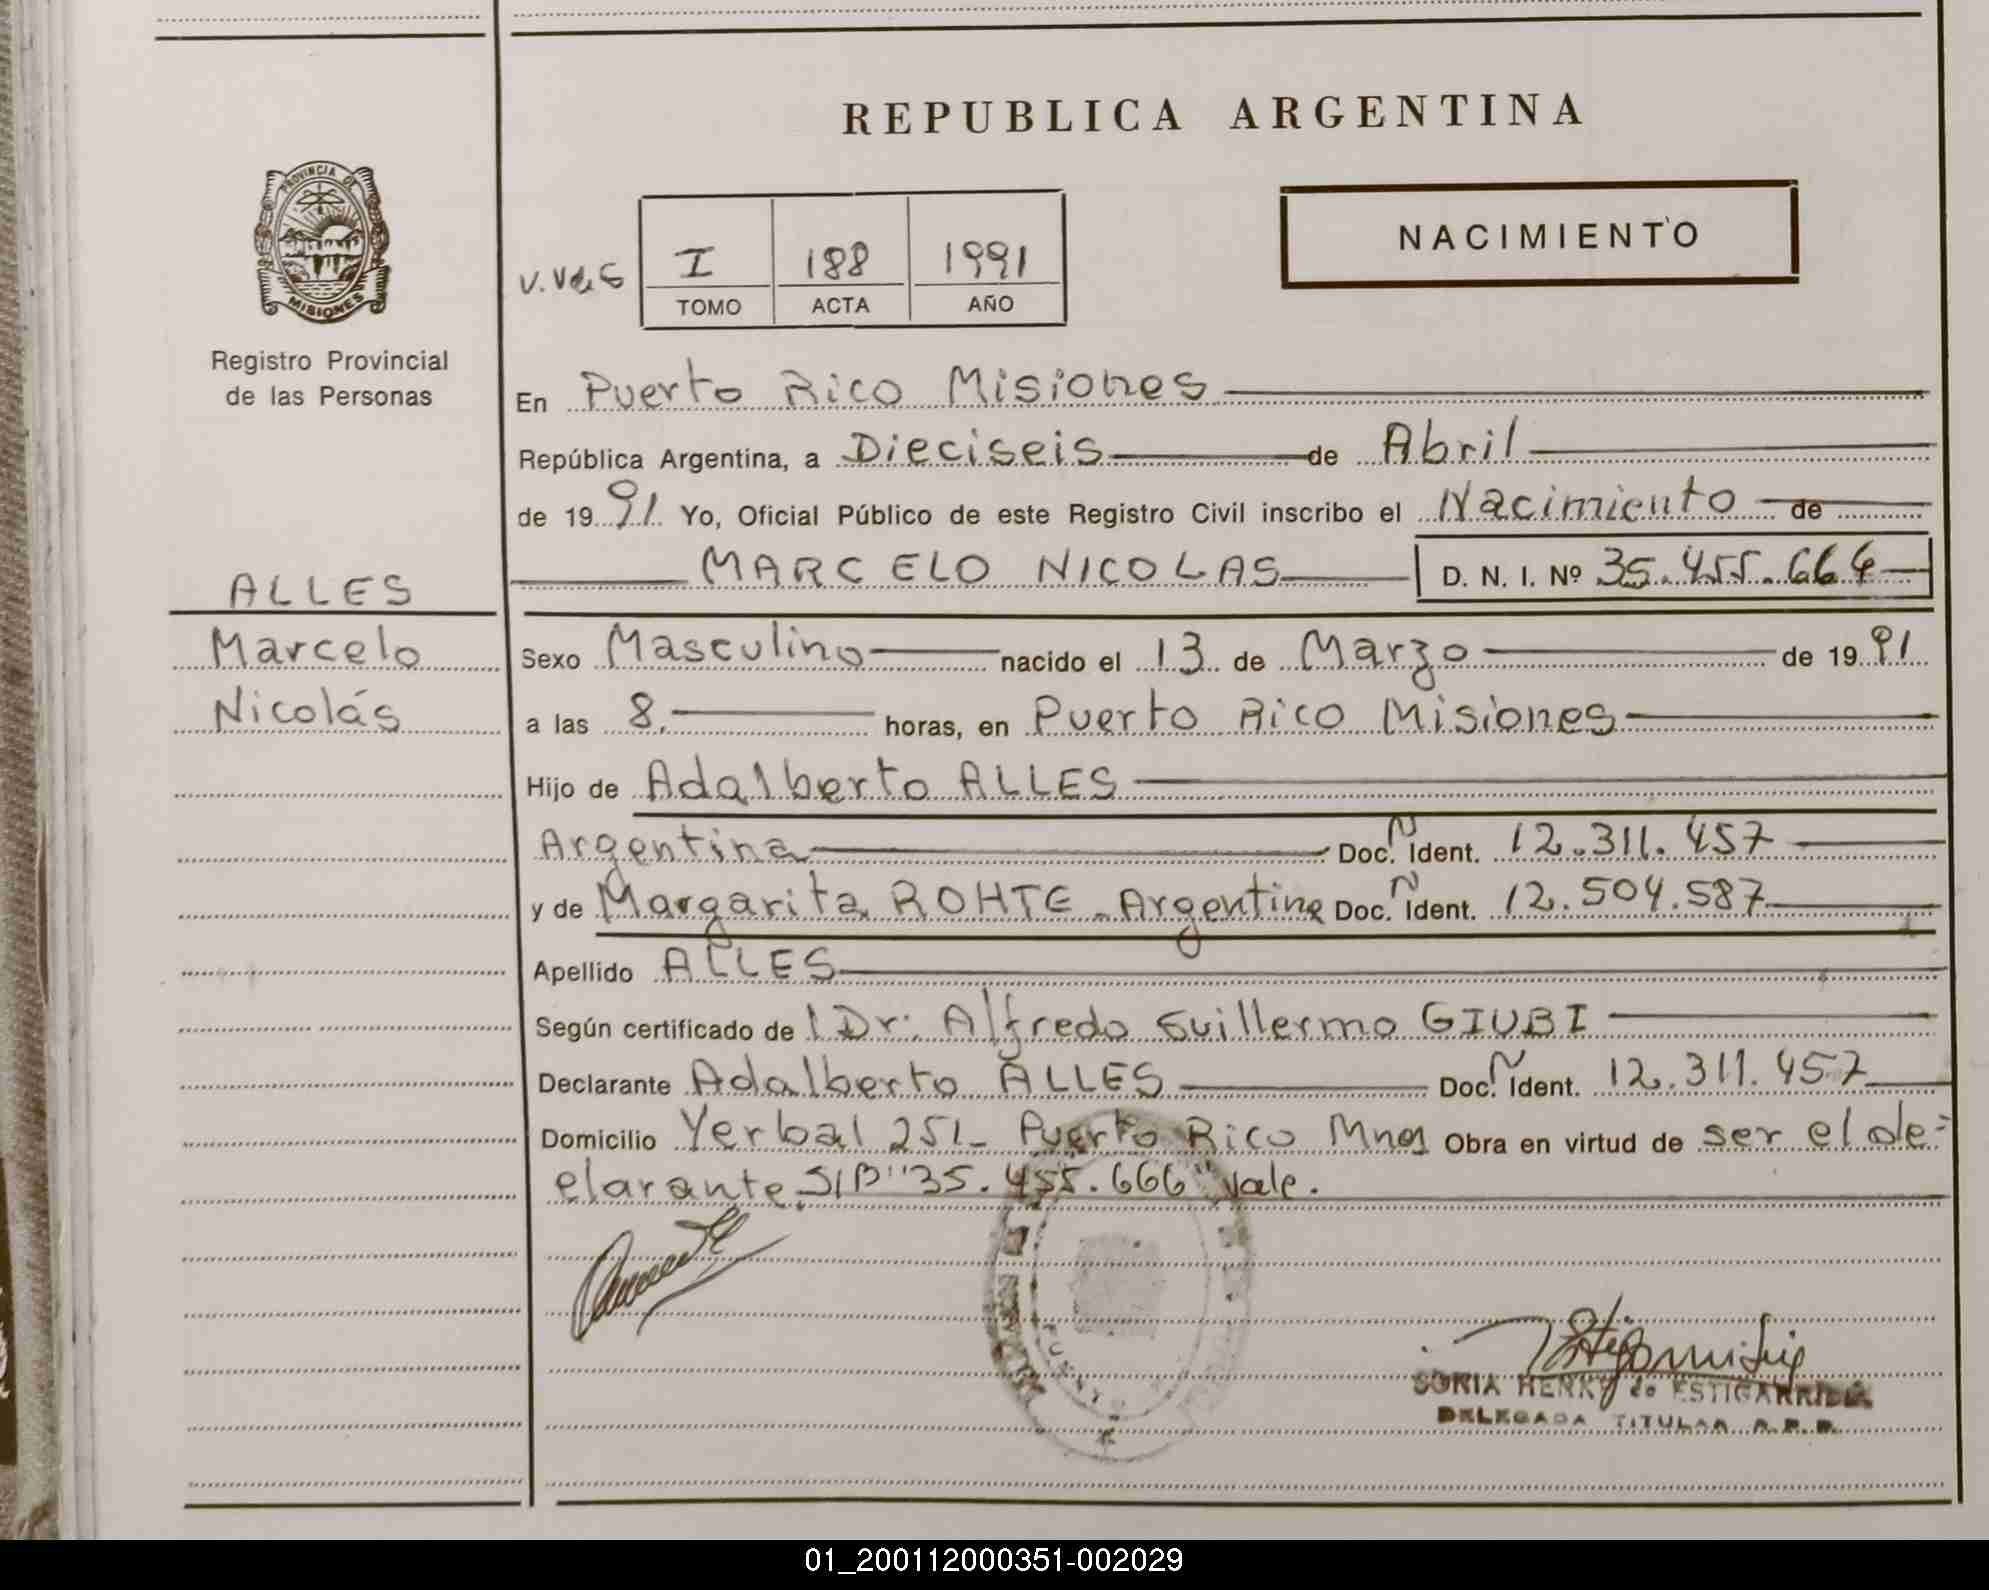 REPUBLICA ARGENTINA
PROVINCIA DE
MISIONES
Registro Provincial
de las Personas
NACIMIENTO
I 188 1991
TOMO ACTA AÑO
En Puerto Rico Misiones
República Argentina, a Dieciseis de Abril
de 19 91 Yo, Oficial Público de este Registro Civil inscribo el Nacimiento de
MARCELO NICOLAS D. N. I. Nº 35.455.666
ALLES
Marcelo
Nicolás
Sexo Masculino nacido el 13 de Marzo de 19 91
a las 8. horas, en Puerto Rico Misiones
Hijo de Adalberto ALLES
Argentina Doc. Ñ Ident. 12.311.457
y de Margarita ROHTE - Argentina Doc. Ñ Ident. 12.504.587
Apellido ALLES
Según certificado de l Dr. Alfredo Guillermo GIUBI
Declarante Adalberto ALLES Doc. Ñ Ident. 12.311.457
Domicilio Yerbal 251- Puerto Rico Mnes Obra en virtud de ser el de=
clarante. S/B "35.455.666" Vale.
SONIA HENRY de ESTIGARRIBIA
DELEGADA TITULAR R.P.P.
01_200112000351-002029